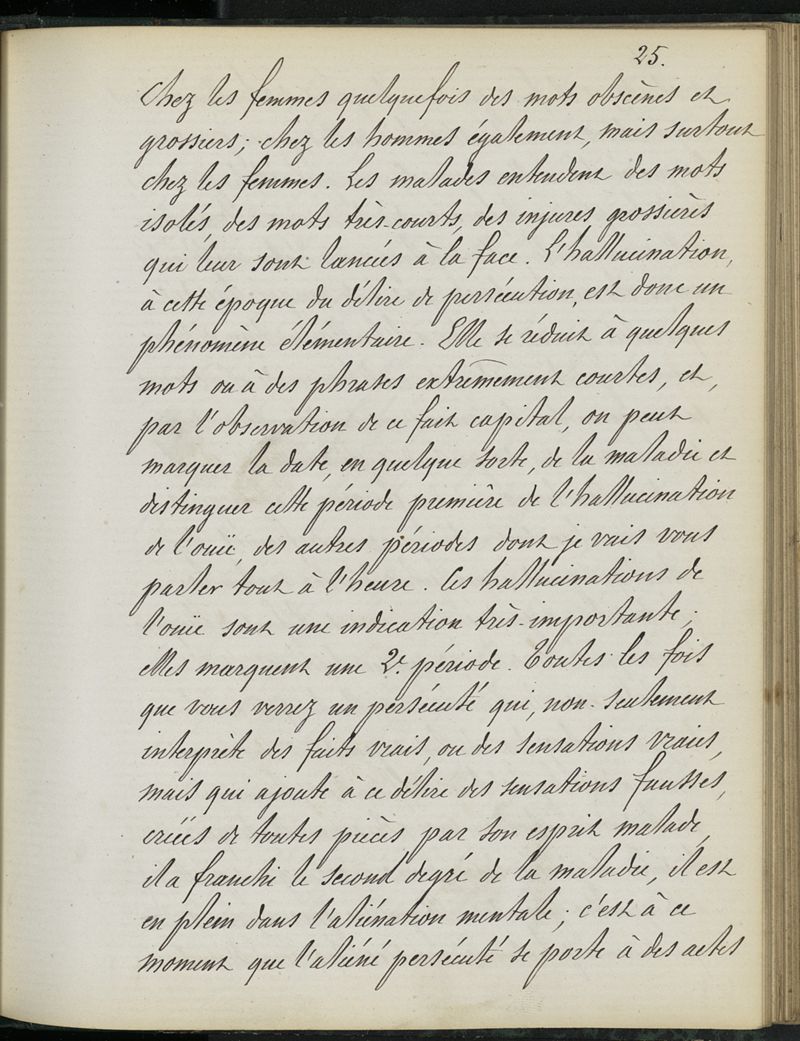 25.
Chez les femmes quelquefois des mots obscènes et
grossiers; chez les hommes également, mais surtout
chez les femmes. Les malades entendent des mots
isolés, des mots très-courts, des injures grossières
qui leur sont lancées à la face. L'hallucination,
à cette époque du délire de persécution, est donc un
phénomène élémentaire. Elle se réduit à quelques
mots ou à des phrases extrêmement courtes, et,
par l'observation de ce fait capital, on peut
marquer la date, en quelque sorte, de la maladie et
distinguer cette période première de l'hallucination
de l'ouïe, des autres périodes dont je vais vous
parler tout à l'heure. Ces hallucinations de
l'ouïe sont une indication très-importante;
elles marquent une 2e. période. Toutes les fois
que vous verrez un persécuté qui, non-seulement
interprète des faits vrais, ou des sensations vraies,
mais qui ajoute à ce délire des sensations fausses,
créées de toutes pièces par son esprit malade,
il a franchi le second degré de la maladie, il est
en plein dans l'aliénation mentale; c'est à ce
moment que l'aliéné persécuté se porte à des actes